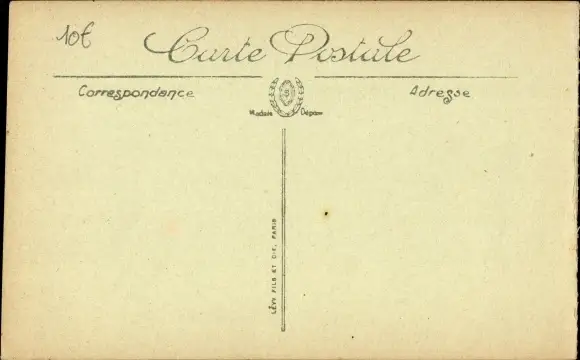 10€
Carte Postale
Correspondance
Adresse
LÉVY FILS ET CIE, PARIS